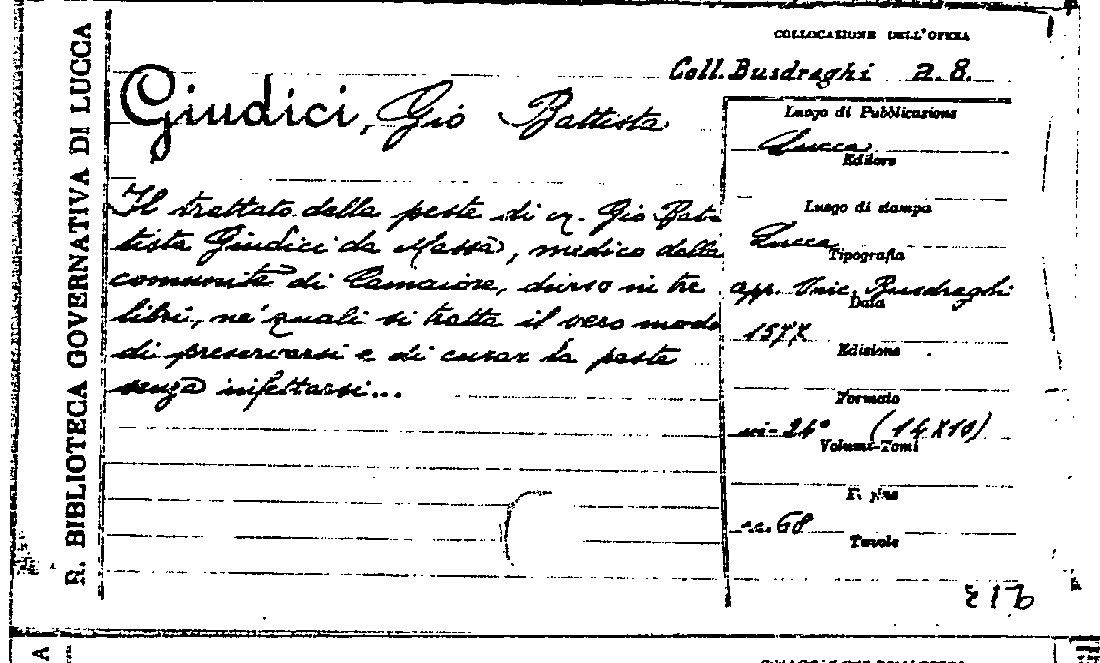 R. BIBLIOTECA GOVERNATIVA DI LUCCA
COLLOCAZIONE DELL'OPERA
Coll. Busdraghi 2.8.
Giudici, Gio Battista
Il trattato della peste di Gio Bat
tista Giudici da Massa, medico della
comunità di Camaiore, diviso in tre
libri, ne' quali si tratta il vero modo
di preservarsi e di curar la peste
senza infettarsi...
Luogo di Pubblicazione
Lucca
Editore
Luogo di stampa
Lucca
Tipografia
app. Vinc. Busdraghi
Data
1577
Edizione
Formato
in-24° (14X10)
Volumi-Tomi
cc. 68
Tavole
A